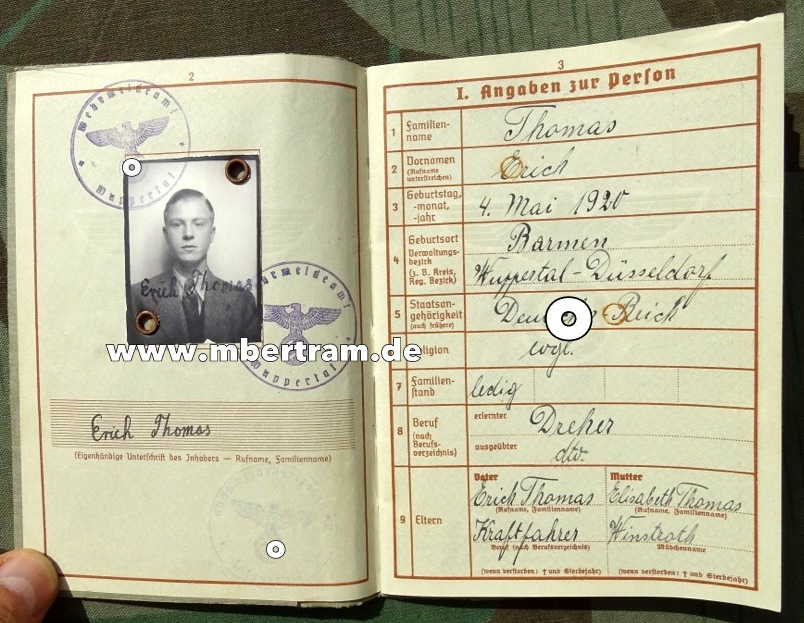 2
Wehrmeldeamt
Wuppertal
Erich Thomas
Wehrmeldeamt
Wuppertal
www.mbertram.de
Erich Thomas
(Eigenhändige Unterschrift des Inhabers — Rufname, Familienname)
3
I. Angaben zur Person
1 Familien-
name
Thomas
2 Vornamen
(Rufname
unterstreichen)
Erich
3 Geburtstag,
-monat,
-jahr
4. Mai 1920
4 Geburtsort
Verwaltungs-
bezirk
(z. B. Kreis,
Reg. Bezirk)
Barmen
Wuppertal-Düsseldorf
5 Staatsan-
gehörigkeit
(auch frühere)
Reich
evgl.
7 Familien-
stand
ledig
8 Beruf
(nach
Berufs-
verzeichnis)
erlernter
Dreher
ausgeübter
dto.
9 Eltern
Vater
Erich Thomas
(Rufname, Familienname)
Kraftfahrer
Beruf (nach Berufsverzeichnis)
(wenn verstorben: † und Sterbejahr)
Mutter
Elisabeth Thomas
(Rufname, Familienname)
Winstroth
Mädchenname
(wenn verstorben: † und Sterbejahr)